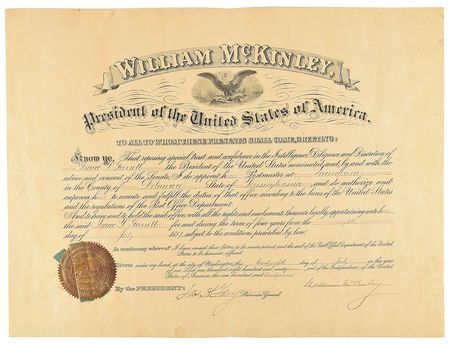 WILLIAM McKINLEY,
President of the United States of America.
TO ALL TO WHOM THESE PRESENTS SHALL COME, GREETING:
Know ye, That reposing special trust and confidence in the Intelligence, Diligence, and Discretion of
I, the President of the United States nominated, and by and with the
advice and consent of the Senate, do appoint him Postmaster at
in the County of Delaware State of Pennsylvania and do authorize and
empower him to execute and fulfil the duties of that office according to the laws of the United States
and the regulations of the Post Office Department.
And to have and to hold the said office, with all the rights and emoluments thereunto legally appertaining unto him
the said for and during the term of four years from the
day of July 1897, subject to the conditions prescribed by law.
In testimony whereof I have caused these letters to be made patent, and the seal of the Post Office Department of the United
States to be hereunto affixed.
Given under my hand, at the city of Washington, this day of July in the year
of our Lord one thousand eight hundred and ninety and of the Independence of the United
States of America, the one hundred and
By the PRESIDENT: Postmaster General. William McKinley